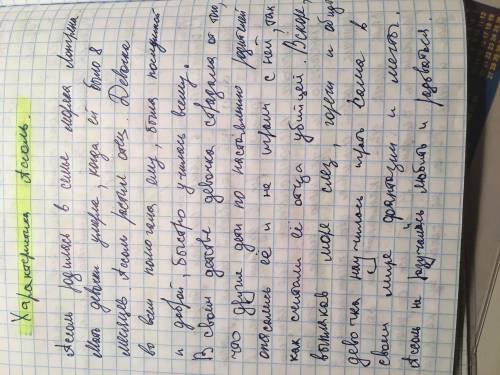 Характеристика Ассоль.
Ассоль родилась в семье моряка Лонгрена
Мать девочки умерла, когда ей было 8
месяцев, Ассоль растил отец. Девочка
во всем помогала ему, была послушной
и доброй, быстро училась всему.
В своем детстве девочка страдала от того,
что другие дети по наставлению родителей
опасались её и не играли с ней, так
как считали её отца убийцей. Вскоре,
выплакав море слез, горечи и обид
девочка научилась играть сама в
своем мире фантазии и мечты.
Ассоль не разучилась любить и радоваться.